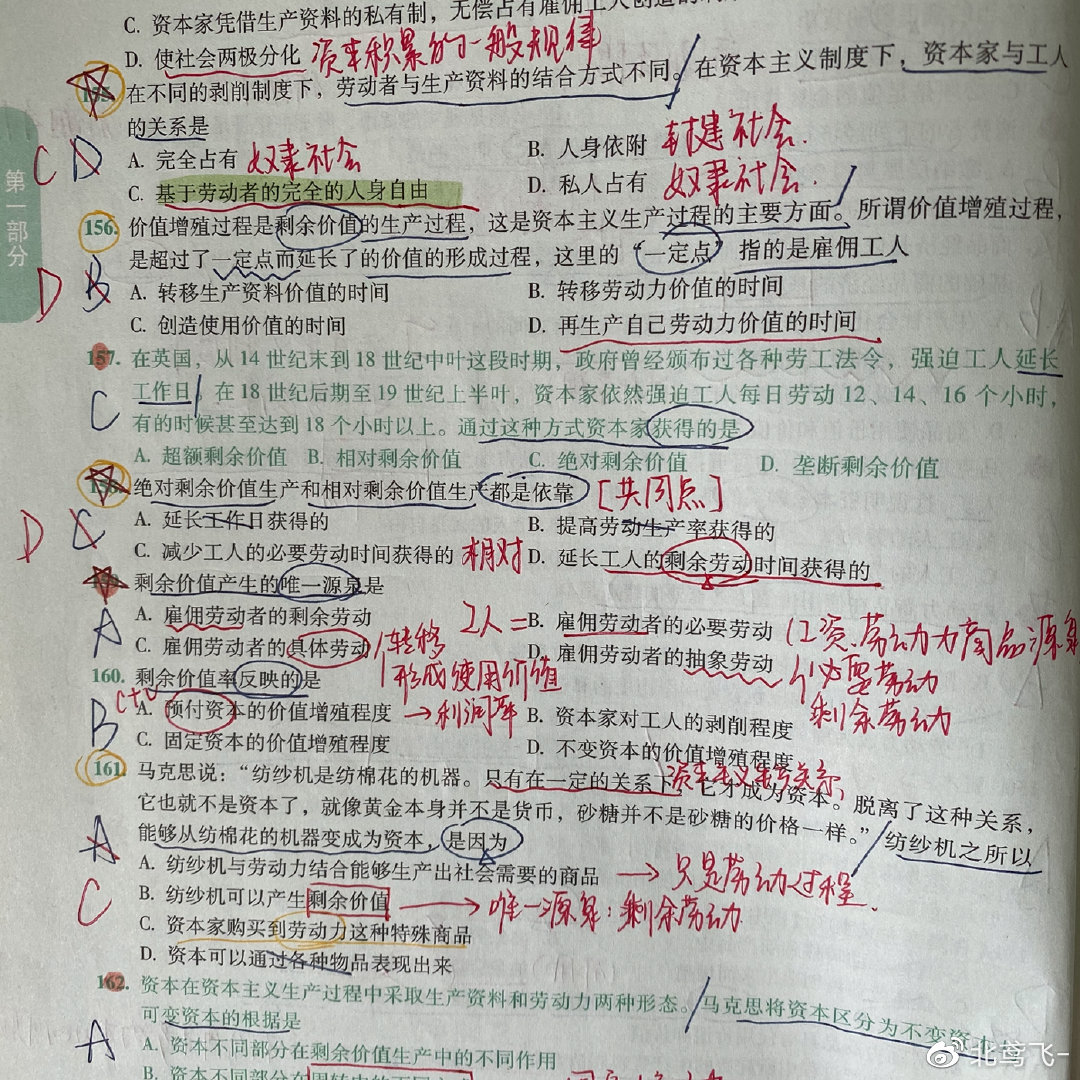 C. 资本家凭借生产资料的私有制，无偿占有雇佣工人创造的
D. 使社会两极分化 资本积累的一般规律
在不同的剥削制度下，劳动者与生产资料的结合方式不同。在资本主义制度下，资本家与工人
的关系是
C D
A. 完全占有 奴隶社会 B. 人身依附 封建社会.
C. 基于劳动者的完全的人身自由 D. 私人占有 奴隶社会.
第一部分
156. 价值增殖过程是剩余价值的生产过程，这是资本主义生产过程的主要方面。所谓价值增殖过程，
是超过了一定点而延长了的价值的形成过程，这里的“一定点”指的是雇佣工人
D B
A. 转移生产资料价值的时间 B. 转移劳动力价值的时间
C. 创造使用价值的时间 D. 再生产自己劳动力价值的时间
157. 在英国，从 14 世纪末到 18 世纪中叶这段时期，政府曾经颁布过各种劳工法令，强迫工人延长
工作日，在 18 世纪后期至 19 世纪上半叶，资本家依然强迫工人每日劳动 12、14、16 个小时，
C
有的时候甚至达到 18 个小时以上。通过这种方式资本家获得的是
A. 超额剩余价值 B. 相对剩余价值 C. 绝对剩余价值 D. 垄断剩余价值
158. 绝对剩余价值生产和相对剩余价值生产都是依靠 [共同点]
A. 延长工作日获得的 B. 提高劳动生产率获得的
D C
C. 减少工人的必要劳动时间获得的 相对 D. 延长工人的剩余劳动时间获得的
剩余价值产生的唯一源泉是
A
A. 雇佣劳动者的剩余劳动 工人= B. 雇佣劳动者的必要劳动 (工资.劳动力商品源泉
C. 雇佣劳动者的具体劳动 转移 D. 雇佣劳动者的抽象劳动 必要劳动
形成使用价值 剩余劳动
160. 剩余价值率反映的是
B
c+v
A. 预付资本的价值增殖程度 →利润率 B. 资本家对工人的剥削程度
C. 固定资本的价值增殖程度 D. 不变资本的价值增殖程度
161. 马克思说：“纺纱机是纺棉花的机器。只有在一定的关系下，它才成为资本。脱离了这种关系，
资本主义生产关系
它也就不是资本了，就像黄金本身并不是货币，砂糖并不是砂糖的价格一样。”纺纱机之所以
能够从纺棉花的机器变成为资本，是因为
A
A. 纺纱机与劳动力结合能够生产出社会需要的商品 → 只是劳动过程.
C
B. 纺纱机可以产生剩余价值 → 唯一源泉：剩余劳动
C. 资本家购买到劳动力这种特殊商品
D. 资本可以通过各种物品表现出来
162. 资本在资本主义生产过程中采取生产资料和劳动力两种形态。马克思将资本区分为不变资
可变资本的根据是
A
A. 资本不同部分在剩余价值生产中的不同作用
B. 资本不同部分在
北鸢飞-